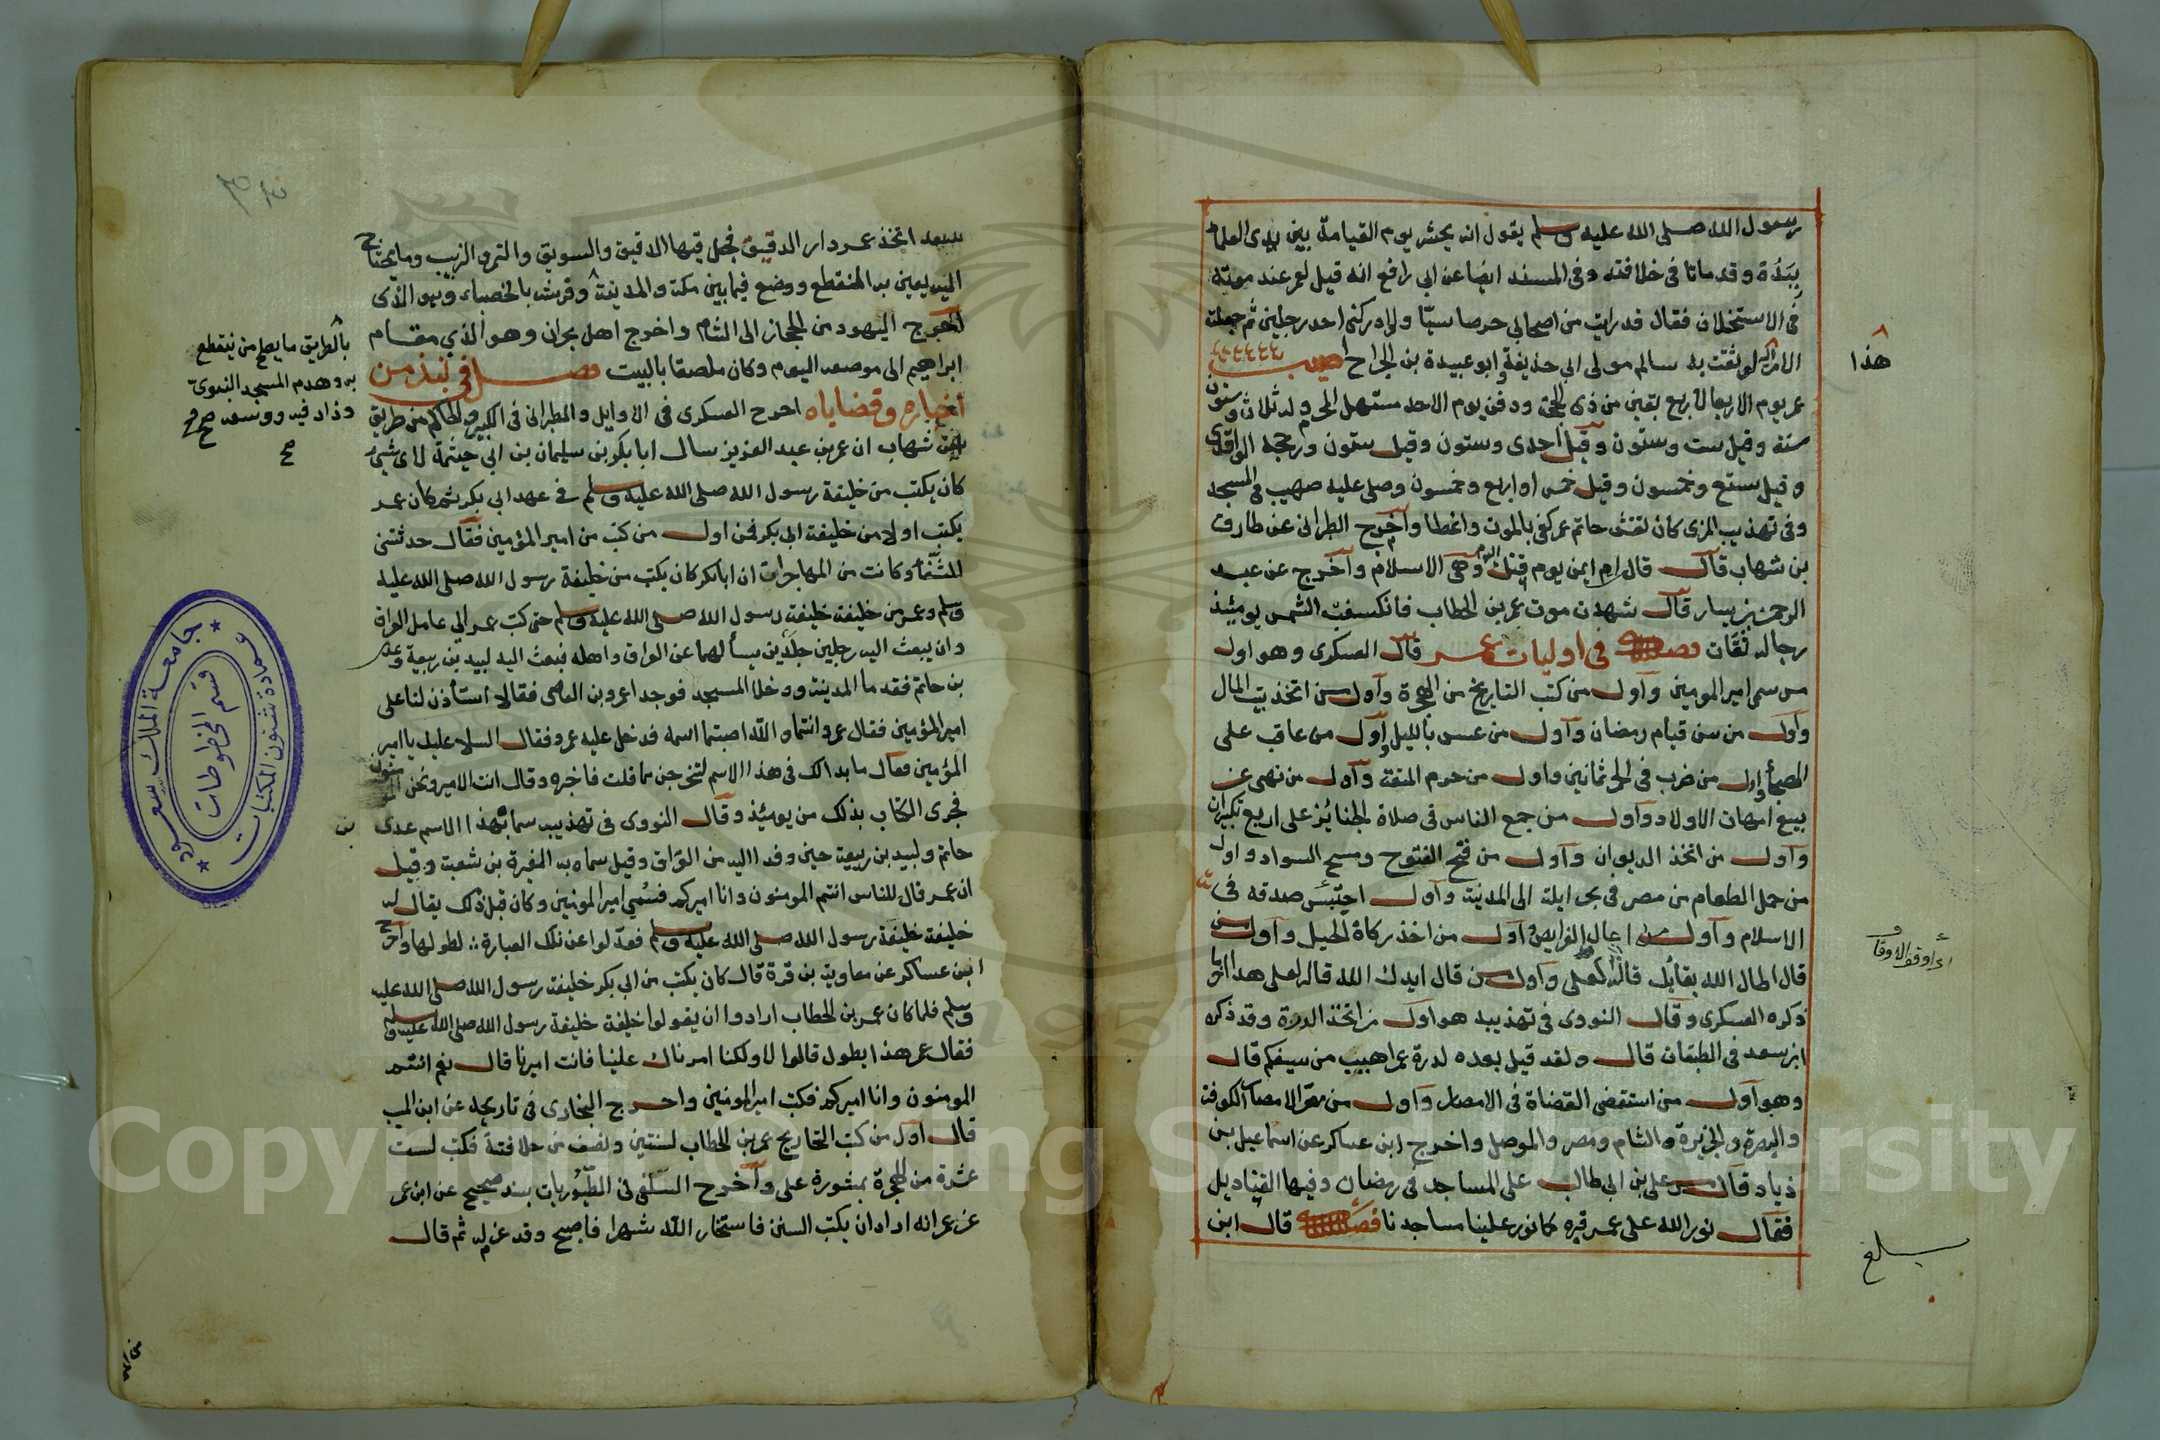 رسول الله صلى الله عليه وسلم يقول انه يحشر يوم القيامة بين يدى العلما
نبذة وقد ماتا فى خلافته وفى المسند ايضا عن ابى رافع انه قيل لعمر عند موته
فى الاستخلاف فقال قد رايت من اصحابى حرصا سيئا ولو ادركنى احد رجلين ثم جعلت
هذا
الامر اليه لوثقت به سالم مولى ابى حذيفة وابو عبيدة بن الجراح اصيب
عمر يوم الاربعا لاربع بقين من ذى الحجة ودفن يوم الاحد مستهل المحرم وله ثلاث وستون
سنة وقيل ست وستون وقيل احدى وستون وقيل ستون ورجحه الواقدى
وقيل تسع وخمسون وقيل خمس او اربع وخمسون وصلى عليه صهيب فى المسجد
وفى تهذيب المزى كان نقش خاتم عمر كفى بالموت واعظا واخرج الطبرانى عن طارق
بن شهاب قال قالت ام ايمن يوم قتل عمر اليوم وهى الاسلام واخرج عن عبد
الرحمن بن يسار قال شهدت موت عمر بن الخطاب فانكسفت الشمس يومئذ
رجاله ثقات فصل فى اوليات عمر قال العسكرى وهو اول
من سمى امير المومنين واول من كتب التاريخ من الهجرة واول من اتخذ بيت المال
واول من سن قيام رمضان واول من عس بالليل واول من عاقب على
الهجا واول من ضرب فى الخمر ثمانين واول من حرم المتعة واول من نهى عن
بيع امهات الاولاد واول من جمع الناس فى صلاة الجنائز على اربع تكبيرات
واول من اتخذ الديوان واول من فتح الفتوح ومسح السواد واول
من حمل الطعام من مصر فى بحر ايلة الى المدينة واول من احتبس صدقة فى
الاسلام واول من اعال الفرايض واول من اخذ زكاة الخيل واول من
اى اوقف الاوقاف
قال اطال الله بقاك قاله لعلى واول من قال ايدك الله قاله لعلى هذا اخر ما
ذكره العسكرى وقال النووى فى تهذيبه هو اول من اتخذ الدرة وقد ذكره
ابن سعد فى الطبقات قال ولقد قيل بعده لدرة عمر اهيب من سيفكم قال
وهو اول من استقضى القضاة فى الامصار واول من مصر الامصار الكوفة
والبصرة والجزيرة والشام ومصر والموصل واخرج ابن عساكر عن اسماعيل بن
زياد قال مر على بن ابى طالب على المساجد فى رمضان وفيها القناديل
فقال نور الله على عمر قبره كما نور علينا مساجدنا فصل قال ابن
بلغ
سعد اتخذ عمر دار الدقيق فجعل فيها الدقيق والسويق والتمر والزبيب وما يحتاج
اليه يعين به المنقطع ووضع فيما بين مكة والمدينة وفرشه بالحصباء وهو الذى
اخرج اليهود من الحجاز الى الشام واخرج اهل نجران وهو الذي مقام
بالطريق ما يصلح من ينقطع
به وهدم المسجد النبوى
وزاد فيه ووسعه صح
صح
ابراهيم الى موضعه اليوم وكان ملصقا بالبيت فصل فى نبذ من
اخباره وقضاياه اخرج العسكرى فى الاوايل والطبرانى فى الكبير والحاكم من طريق
ابن شهاب ان عمر بن عبد العزيز سال ابا بكر بن سليمان بن ابى حيثمة لاى شئ
كان يكتب من خليفة رسول الله صلى الله عليه وسلم فى عهد ابى بكر ثم كان عمر
يكتب اولا من خليفة ابى بكر فمن اول من كتب من امير المؤمنين فقال حدثتنى
الشفا وكانت من المهاجرات ان ابا بكر كان يكتب من خليفة رسول الله صلى الله عليه
وسلم وعمر من خليفة خليفة رسول الله صلى الله عليه وسلم حتى كتب عمر الى عامل العراق
وان يبعث اليه رجلين جلدين يسألهما عن العراق واهله فبعث اليه لبيد بن ربيعة وعدى
بن حاتم فقدما المدينة ودخلا المسجد فوجدا عمرو بن العاصى فقالا استأذن لنا على
امير المؤمنين فقال عمرو انتما والله اصبتما اسمه فدخل عليه عمرو فقال السلام عليك يا امير
المؤمنين فقال ما بدا لك فى هذا الاسم لتخرجن مما قلت فاخبره وقال انت الامير ونحن المؤمنون
فجرى الكتاب بذلك من يومئذ وقال النووى فى تهذيبه سماه بهذا الاسم عدى بن
حاتم ولبيد بن ربيعة حين وفدا اليه من العراق وقيل سماه به المغيرة بن شعبة وقيل
ان عمر قال للناس انتم المومنون وانا اميركم فسمى امير المومنين وكان قبل ذلك يقال له
خليفة خليفة رسول الله صلى الله عليه وسلم فعدلوا عن تلك العبارة لطولها واخرج
ابن عساكر عن معاوية بن قرة قال كان يكتب من ابى بكر خليفة رسول الله صلى الله عليه
وسلم فلما كان عمر بن الخطاب ارادوا ان يقولوا خليفة خليفة رسول الله صلى الله عليه وسلم
فقال عمر هذا يطول قالوا لا ولكنا امرناك علينا فانت اميرنا قال نعم انتم
المومنون وانا اميركم فكتب امير المومنين واخرج البخارى فى تاريخه عن ابن المسيب
قال اول من كتب التاريخ عمر بن الخطاب لسنتين ونصف من خلافته فكتب لست
عشرة من الهجرة بمشورة على واخرج السلفى فى الطيوريات بسند صحيح عن ابن عمر
عن عمر انه اراد ان يكتب السنن فاستخار الله شهرا فاصبح وقد عزم له ثم قال
جامعة الملك سعود
عمادة شئون المكتبات
قسم المخطوطات
Copyright © King Saud University
1957